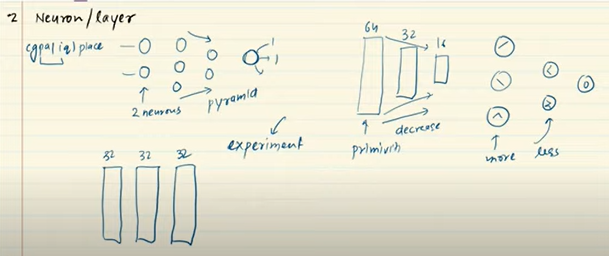 2 Neuron/layer
cgpa | iq | place
2 neurons
pyramid
experiment
64 32 16
primivih
decrease
more
less
32 32 32